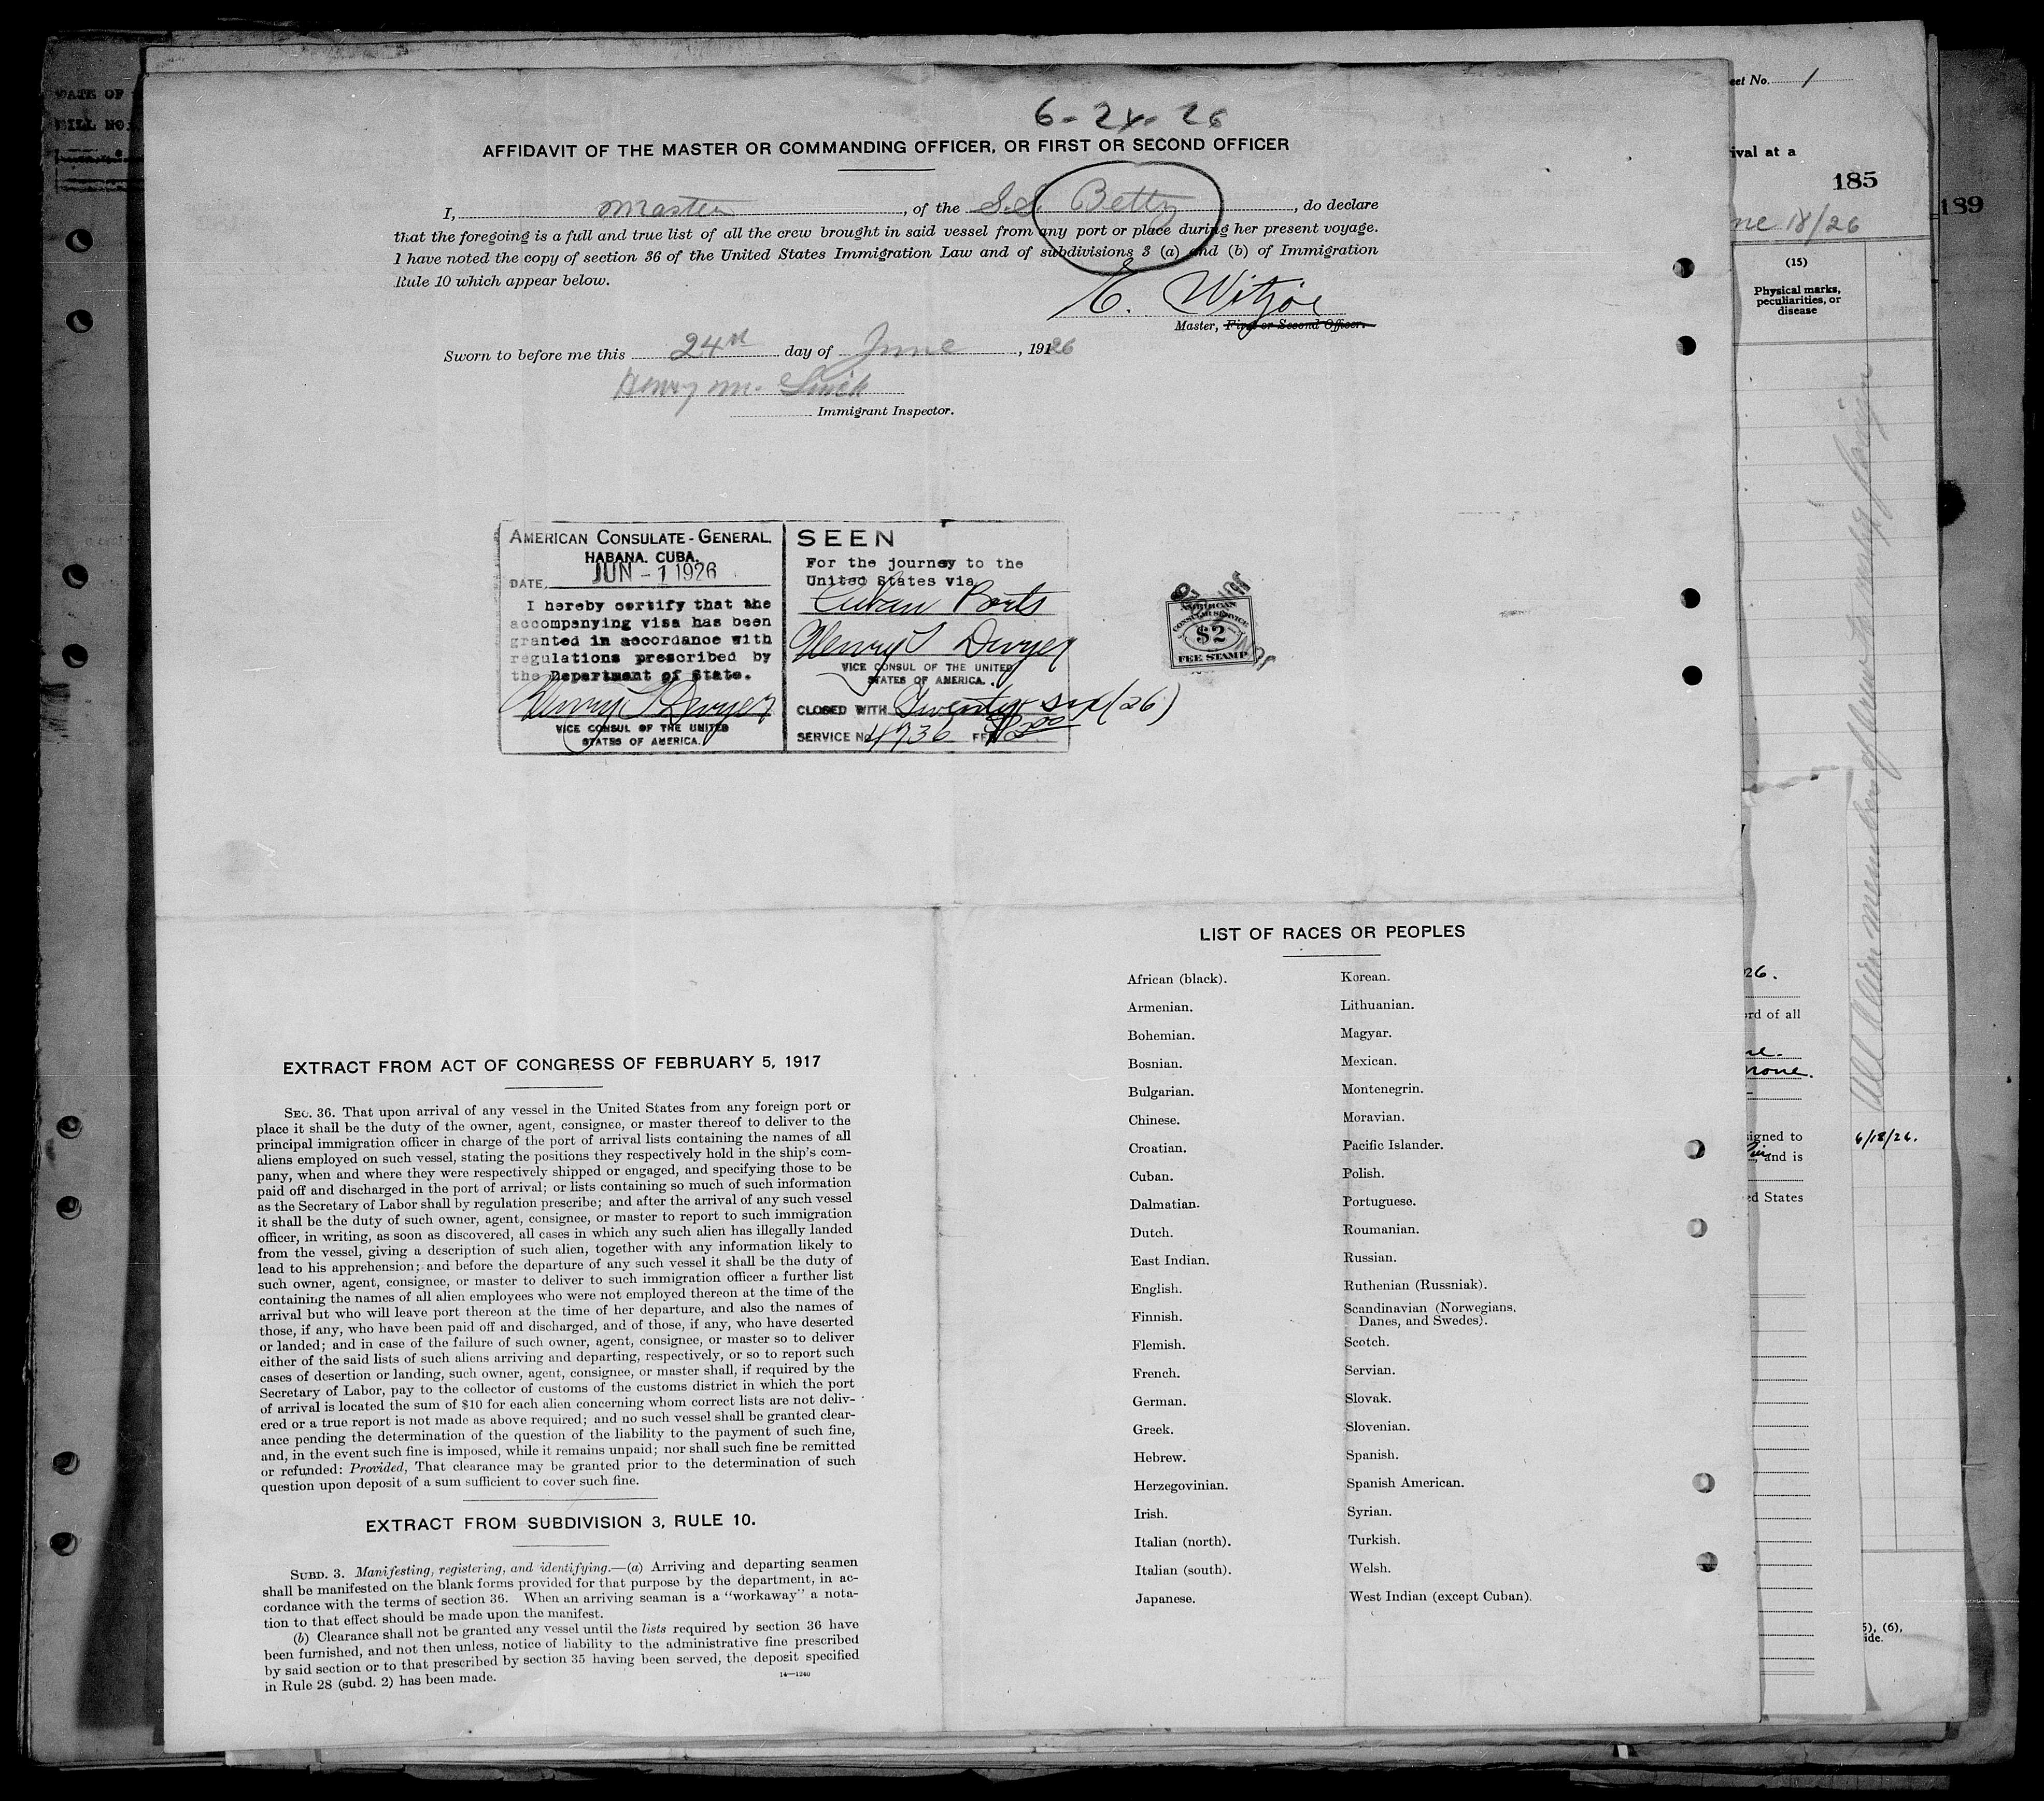 6-24-26
AFFIDAVIT OF THE MASTER OR COMMANDING OFFICER, OR FIRST OR SECOND OFFICER
I, Master, of the S.S. Betty, do declare
that the foregoing is a full and true list of all the crew brought in said vessel from any port or place during her present voyage.
I have noted the copy of section 36 of the United States Immigration Law and of subdivisions 3 (a) and (b) of Immigration
Rule 10 which appear below.
E.
Master, First or Second Officer.
Sworn to before me this 24th day of June, 19126
Henry M.
Immigrant Inspector.
AMERICAN CONSULATE-GENERAL,
HABANA. CUBA.
DATE, JUN -1 1926
I hereby certify that the
accompenying visa has been
granted in accordance with
regulations prescribed by
the Department of State.
Henry T Dwyer
VICE CONSUL OF THE UNITED
STATES OF AMERICA.
SEEN
For the journey to the
United States via
Cuban Ports
Henry T Dwyer
VICE CONSUL OF THE UNITED
STATES OF AMERICA.
CLOSED WITH Twenty six (26)
SERVICE No 4736 FEE $2.00
AMERICAN
CONSULAR SERVICE
$2
FEE STAMP
LIST OF RACES OR PEOPLES
African (black).
Armenian.
Bohemian.
Bosnian.
Bulgarian.
Chinese.
Croatian.
Cuban.
Dalmatian.
Dutch.
East Indian.
English.
Finnish.
Flemish.
French.
German.
Greek.
Hebrew.
Herzegovinian.
Irish.
Italian (north).
Italian (south).
Japanese.
Korean.
Lithuanian.
Magyar.
Mexican.
Montenegrin.
Moravian.
Pacific Islander.
Polish.
Portuguese.
Roumanian.
Russian.
Ruthenian (Russniak).
Scandinavian (Norwegians,
Danes, and Swedes).
Scotch.
Servian.
Slovak.
Slovenian.
Spanish.
Spanish American.
Syrian.
Turkish.
Welsh.
West Indian (except Cuban).
EXTRACT FROM ACT OF CONGRESS OF FEBRUARY 5, 1917
SEC. 36. That upon arrival of any vessel in the United States from any foreign port or
place it shall be the duty of the owner, agent, consignee, or master thereof to deliver to the
principal immigration officer in charge of the port of arrival lists containing the names of all
aliens employed on such vessel, stating the positions they respectively hold in the ship's com-
pany, when and where they were respectively shipped or engaged, and specifying those to be
paid off and discharged in the port of arrival; or lists containing so much of such information
as the Secretary of Labor shall by regulation prescribe; and after the arrival of any such vessel
it shall be the duty of such owner, agent, consignee, or master to report to such immigration
officer, in writing, as soon as discovered, all cases in which any such alien has illegally landed
from the vessel, giving a description of such alien, together with any information likely to
lead to his apprehension; and before the departure of any such vessel it shall be the duty of
such owner, agent, consignee, or master to deliver to such immigration officer a further list
containing the names of all alien employees who were not employed thereon at the time of the
arrival but who will leave port thereon at the time of her departure, and also the names of
those, if any, who have been paid off and discharged, and of those, if any, who have deserted
or landed; and in case of the failure of such owner, agent, consignee, or master so to deliver
either of the said lists of such aliens arriving and departing, respectively, or so to report such
cases of desertion or landing, such owner, agent, consignee, or master shall, if required by the
Secretary of Labor, pay to the collector of customs of the customs district in which the port
of arrival is located the sum of $10 for each alien concerning whom correct lists are not deliv-
ered or a true report is not made as above required; and no such vessel shall be granted clear-
ance pending the determination of the question of the liability to the payment of such fine,
and, in the event such fine is imposed, while it remains unpaid; nor shall such fine be remitted
or refunded: Provided, That clearance may be granted prior to the determination of such
question upon deposit of a sum sufficient to cover such fine.
EXTRACT FROM SUBDIVISION 3, RULE 10.
SUBD. 3. Manifesting, registering, and identifying.—(a) Arriving and departing seamen
shall be manifested on the blank forms provided for that purpose by the department, in ac-
cordance with the terms of section 36. When an arriving seaman is a "workaway" a nota-
tion to that effect should be made upon the manifest.
(b) Clearance shall not be granted any vessel until the lists required by section 36 have
been furnished, and not then unless, notice of liability to the administrative fine prescribed
by said section or to that prescribed by section 35 having been served, the deposit specified
in Rule 28 (subd. 2) has been made.
14—1240
DATE OF
BILL NO.
eet No. 1
ival at a
185
189
ne 18/26
(15)
Physical marks,
peculiarities, or
disease
26.
rd of all
none.
signed to
6/18/26.
and is
ed States
5), (6),
ide.